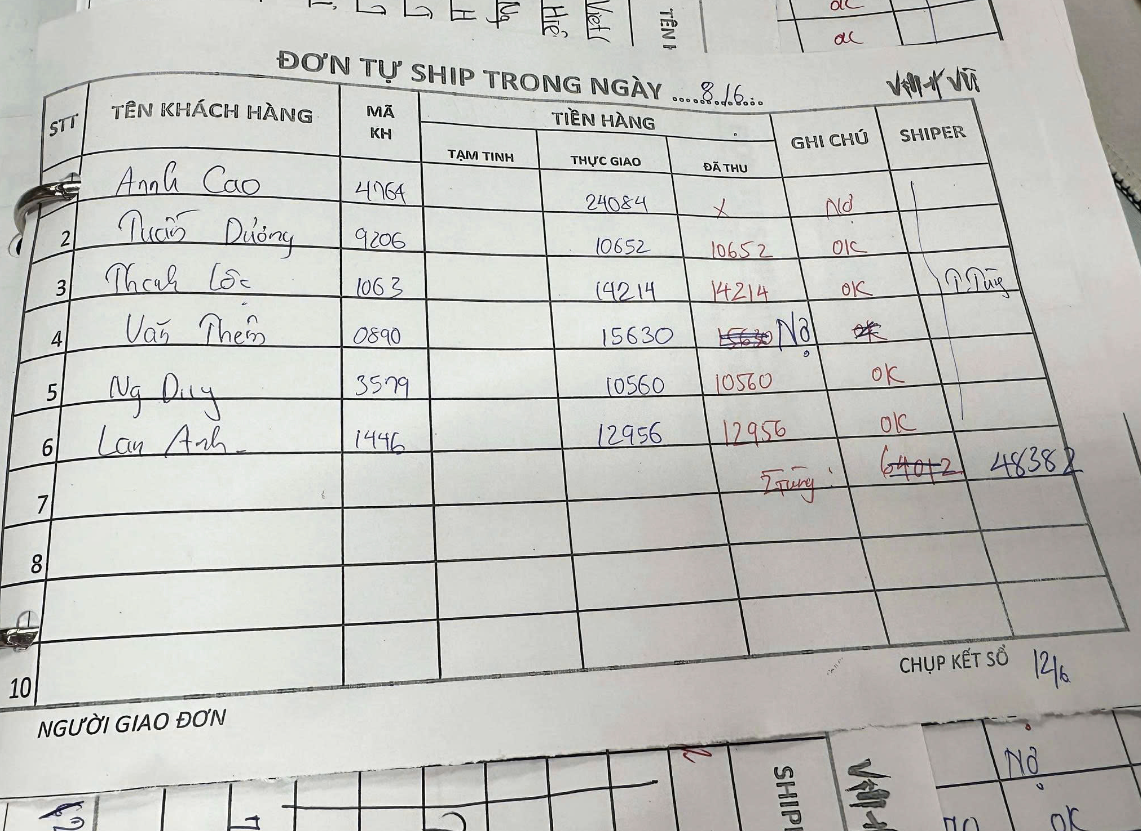 TÊN
ĐƠN TỰ SHIP TRONG NGÀY ...8/6...
VŨ
STT TÊN KHÁCH HÀNG MÃ KH TIỀN HÀNG GHI CHÚ SHIPER
TẠM TINH THỰC GIAO ĐÃ THU
Annh Cao 4764 24084 X Nợ
2 Tuấn Dưỡng 9206 10652 10652 OK
3 Thanh Lộc 1063 14214 14214 OK T.Tùng
4 Văn Thêm 0890 15630 15630 Nợ OK
5 Ng Duy 3579 10560 10560 OK
6 Lan Anh 1446 12956 12956 OK
7 Tùng: 64012 48382
8
10
CHỤP KẾT SỔ 12/6
NGƯỜI GIAO ĐƠN
Nợ
OK